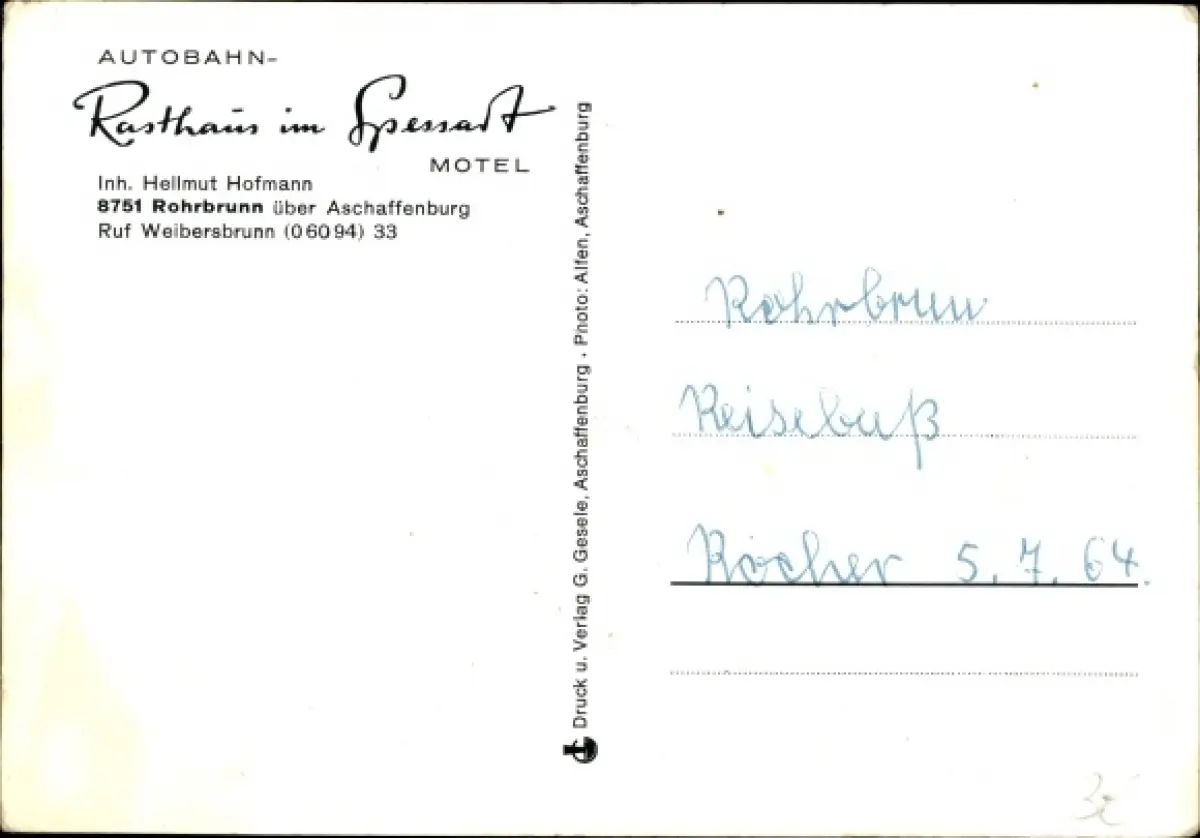 AUTOBAHN-
Rasthaus im Spessart
MOTEL
Inh. Hellmut Hofmann
8751 Rohrbrunn über Aschaffenburg
Ruf Weibersbrunn (0 60 94) 33
Druck u. Verlag G. Gesele, Aschaffenburg · Photo: Alfen, Aschaffenburg
Rohrbrun
Reisebuß
Rocher 5. 7. 64.